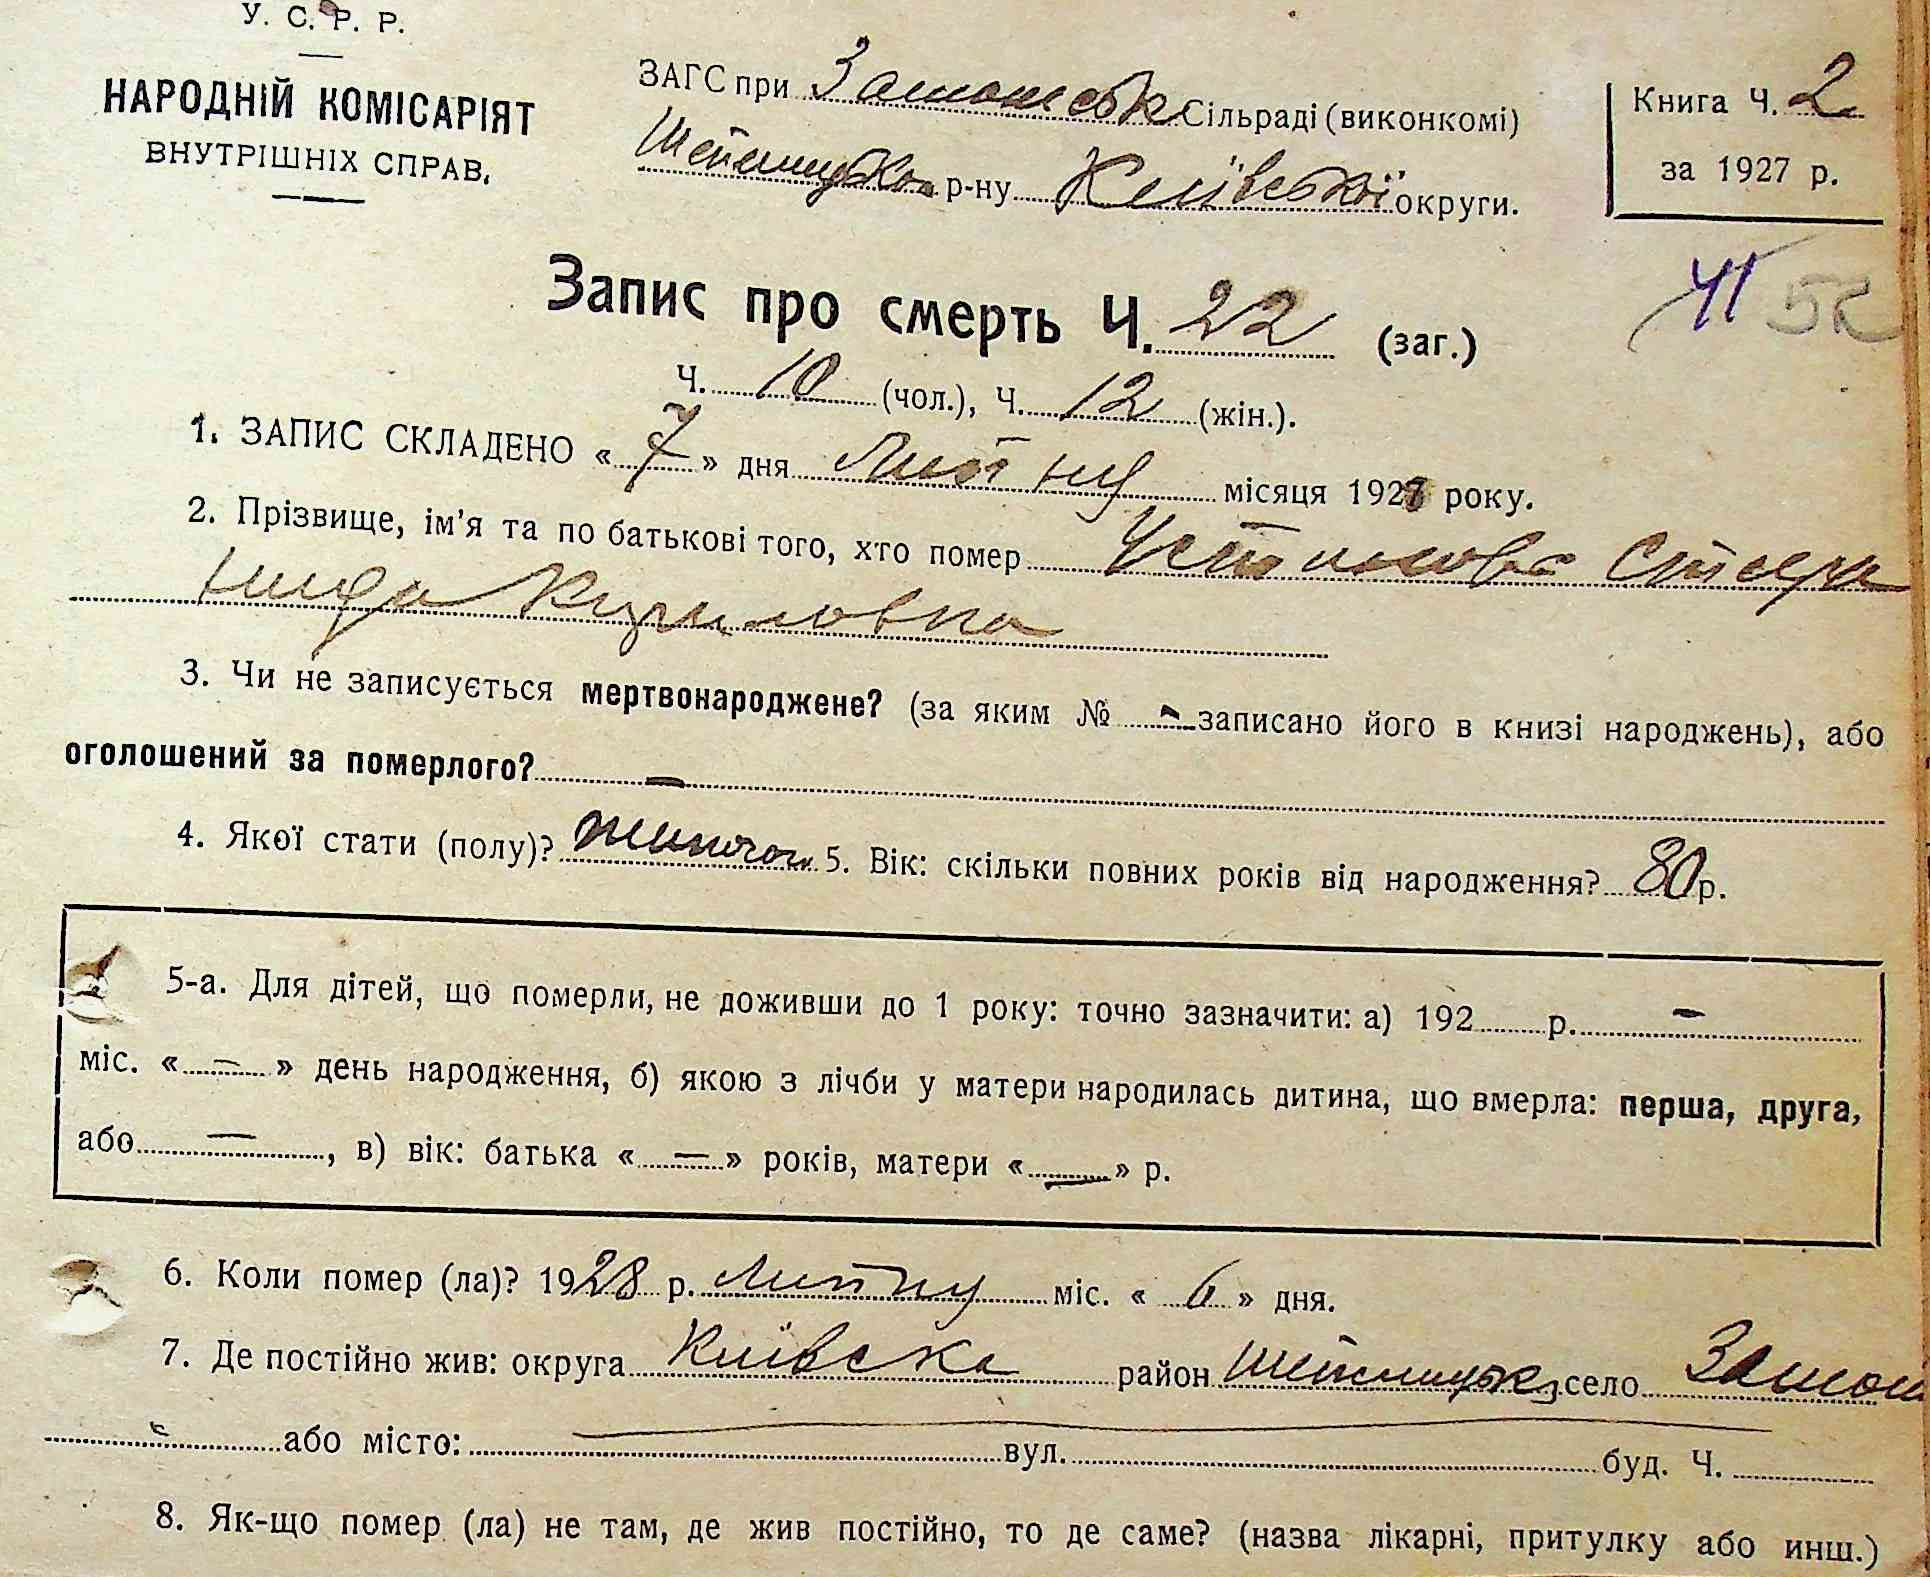 У. С. Р. Р.
НАРОДНІЙ КОМІСАРІЯТ
ВНУТРІШНІХ СПРАВ.
ЗАГС при Сільраді (виконкомі)
р-ну Київської округи.
Книга Ч. 2
за 1927 р.
41 52
Запис про смерть Ч. 22 (заг.)
Ч. 10 (чол.), Ч. 12 (жін.).
1. ЗАПИС СКЛАДЕНО « 7 » дня місяця 1927 року.
2. Прізвище, ім'я та по батькові того, хто помер
Кириловна
3. Чи не записується мертвонароджене? (за яким № - записано його в книзі народжень), або
оголошений за померлого? —
4. Якої стати (полу)? 5. Вік: скільки повних років від народження? 80 р.
5-а. Для дітей, що померли, не доживши до 1 року: точно зазначити: а) 192 р. —
міс. « — » день народження, б) якою з лічби у матери народилась дитина, що вмерла: перша, друга,
або — , в) вік: батька « — » років, матери « — » р.
6. Коли помер (ла)? 1928 р. міс. « 6 » дня.
7. Де постійно жив: округа Київска район село
або місто: вул. буд. Ч.
8. Як-що помер (ла) не там, де жив постійно, то де саме? (назва лікарні, притулку або инш.)